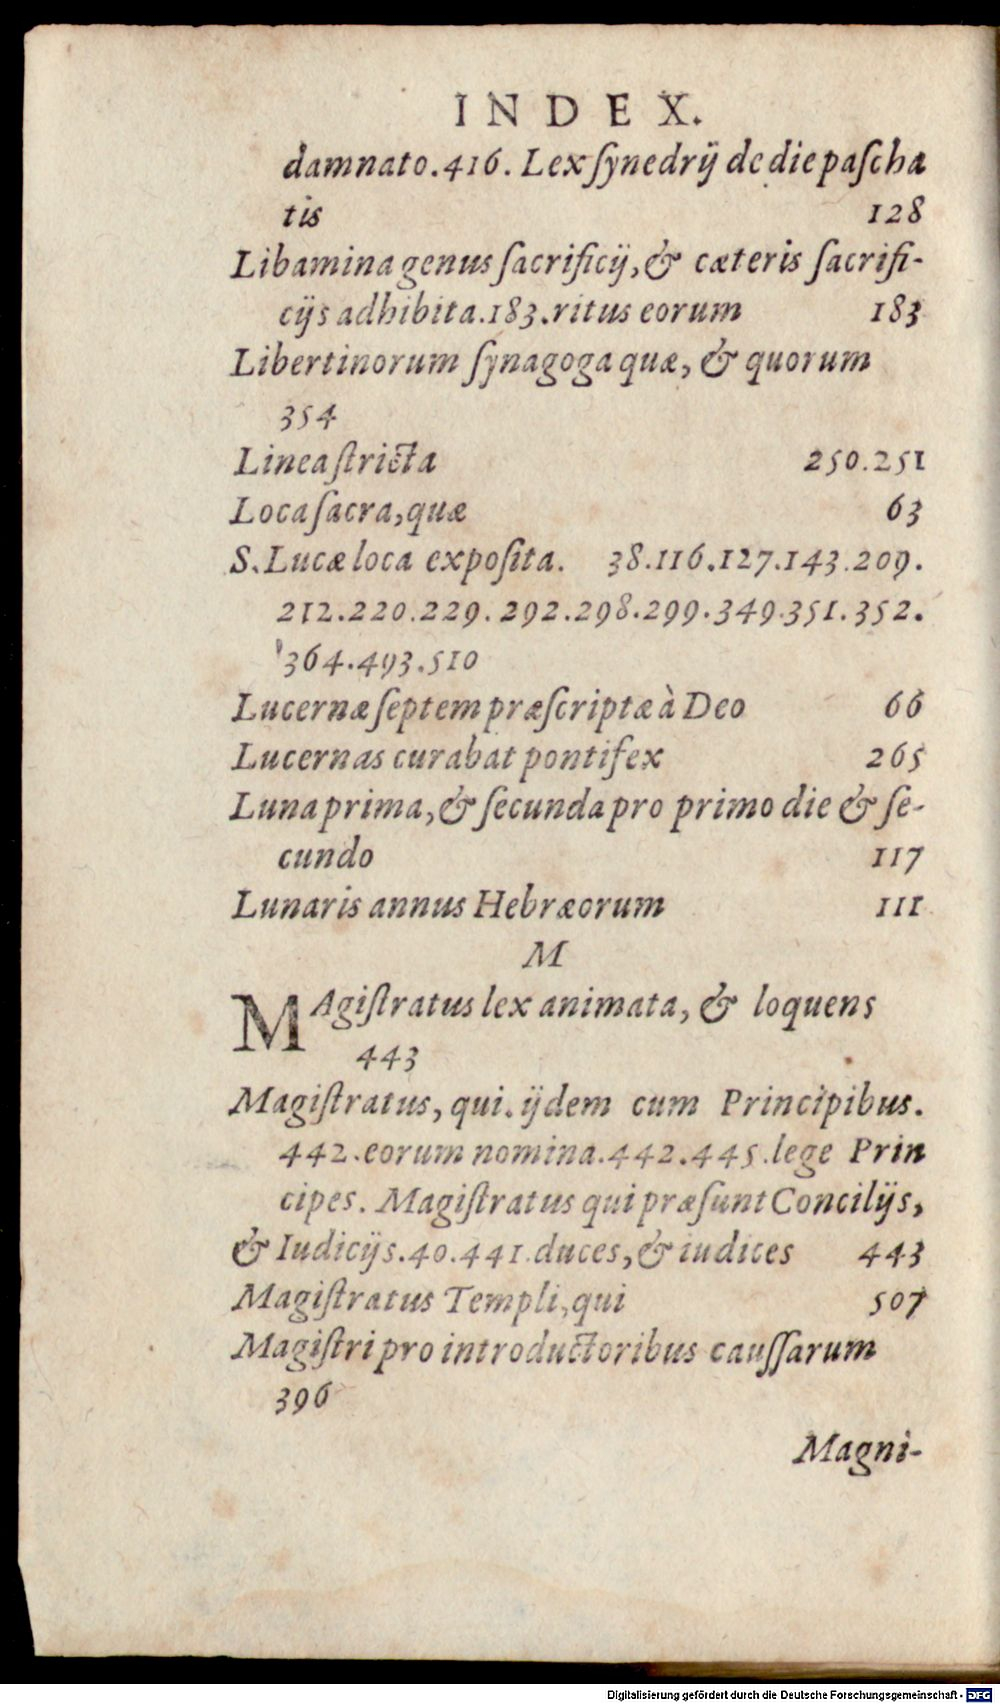 INDEX.
damnato.416. Lex ſynedrij de die paſcha
tis 128
Libamina genus ſacrificij, & cæteris ſacrifi-
cijs adhibita.183.ritus eorum 183
Libertinorum ſynagoga quæ, & quorum
354
Linea ſtricta 250.251
Loca ſacra, quæ 63
S. Lucæ loca expoſita. 38.116.127.143.209.
212.220.229.292.298.299.349.351.352.
364.493.510
Lucernæ ſeptem præſcriptæ à Deo 66
Lucernas curabat pontifex 265
Luna prima, & ſecunda pro primo die & ſe-
cundo 117
Lunaris annus Hebræorum 111
M
MAgiſtratus lex animata, & loquens
443
Magiſtratus, qui. ijdem cum Principibus.
442.eorum nomina.442.445.lege Prin
cipes. Magiſtratus qui præſunt Concilijs,
& Iudicijs.40.441.duces, & iudices 443
Magiſtratus Templi, qui 507
Magiſtri pro introductoribus cauſſarum
396
Magni-
Digitalisierung gefördert durch die Deutsche Forschungsgemeinschaft - DFG